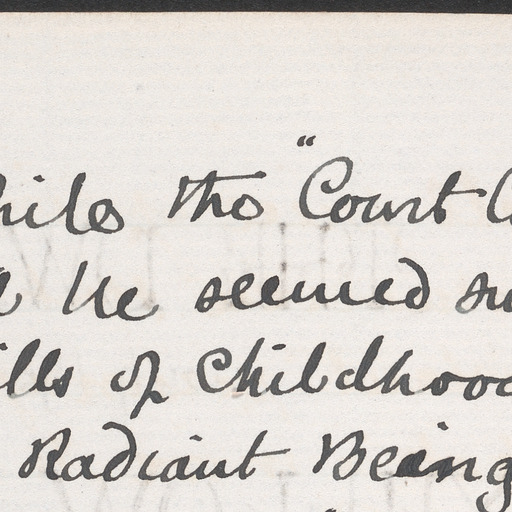 hile the "Court C
he seemed su
ills of Childhood
Radiant Being